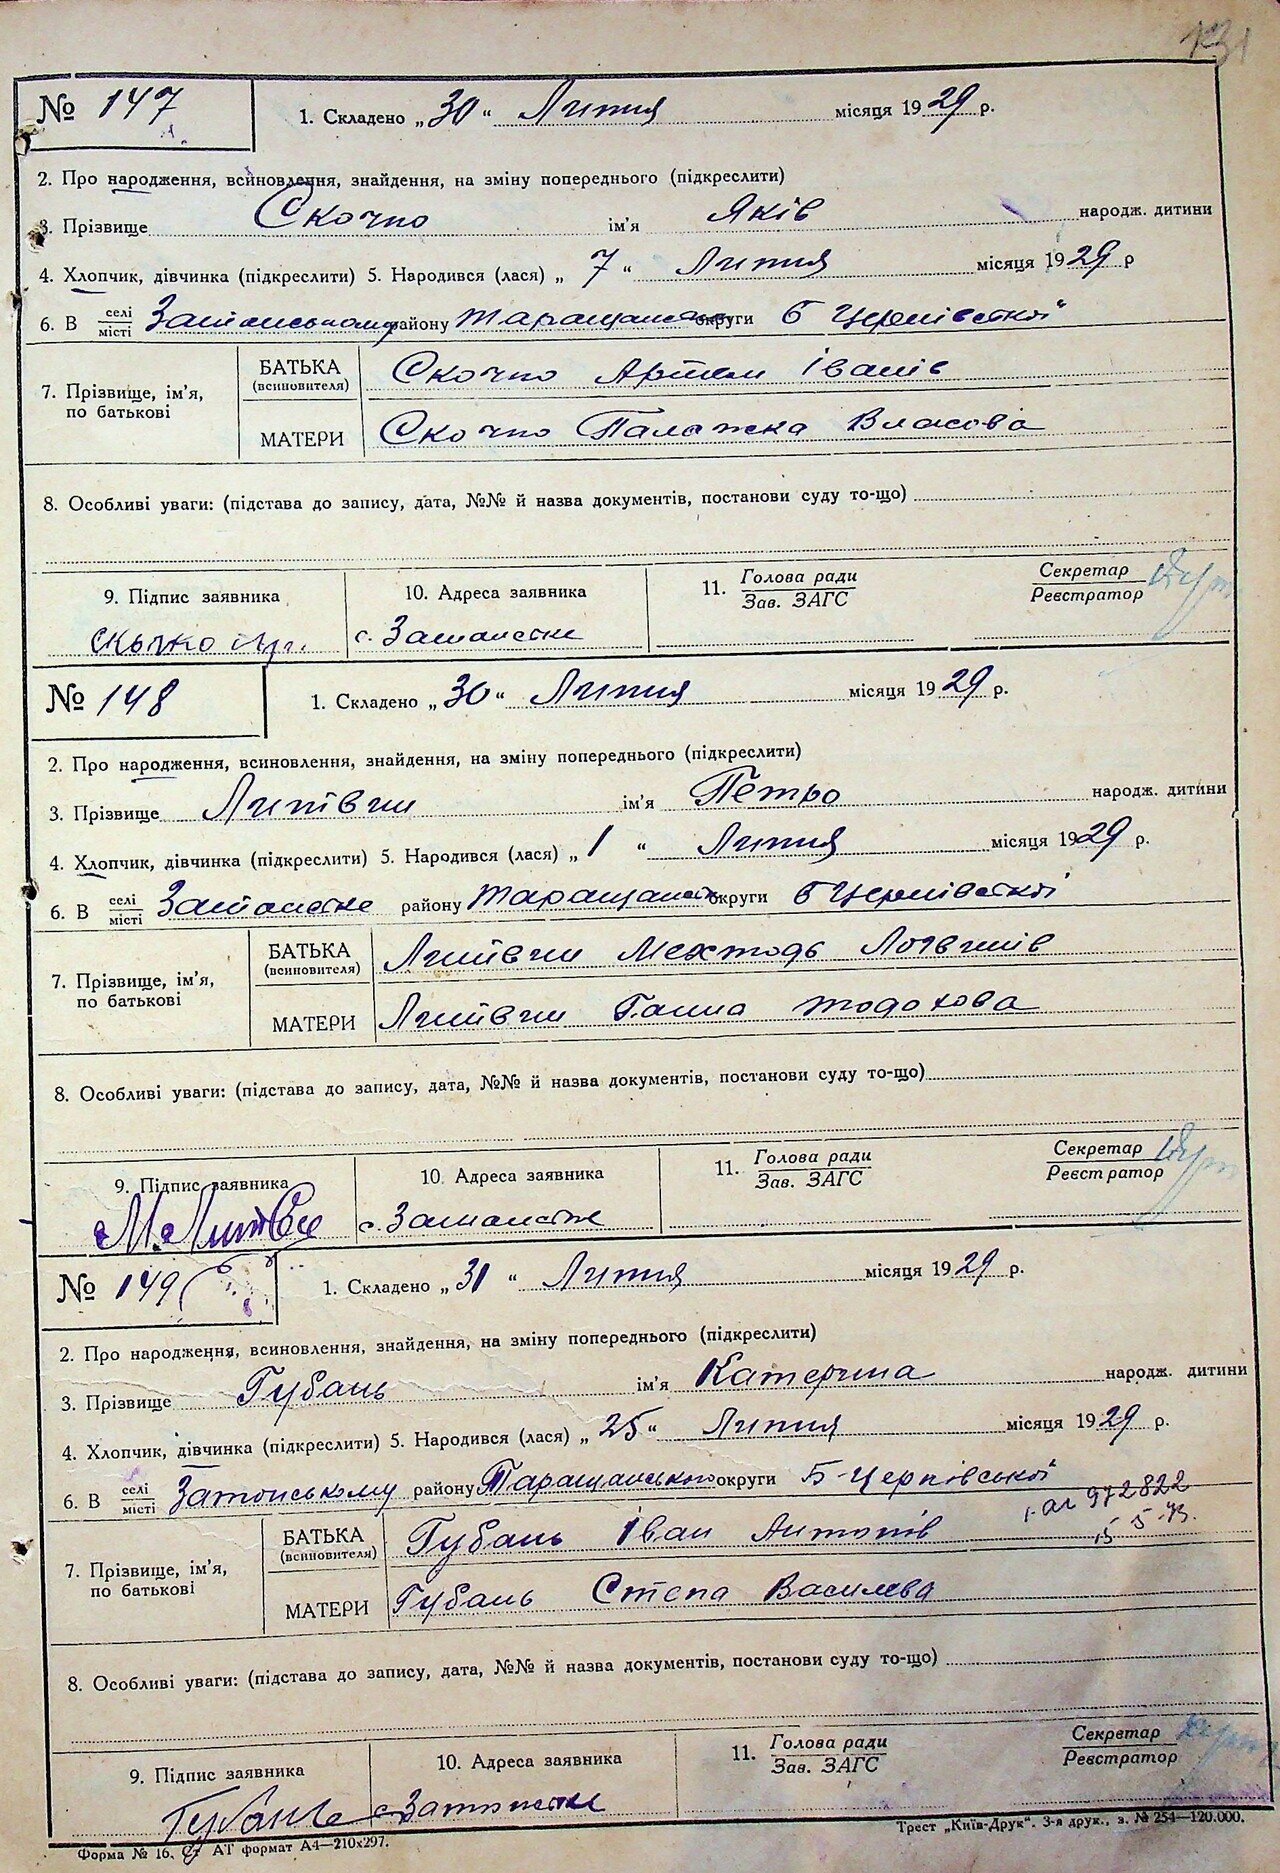 131
№ 147 1. Складено „30“ Липня місяця 1929 р.
2. Про народження, всиновлення, знайдення, на зміну попереднього (підкреслити)
3. Прізвище Скочко ім'я Яків народж. дитини
4. Хлопчик, дівчинка (підкреслити) 5. Народився (лася) „7“ Липня місяця 1929 р
6. В селі місті району округи Б Церківської
7. Прізвище, ім'я, по батькові БАТЬКА (всиновителя) Скочко Артем Іванів
МАТЕРИ Скочко Палажка Власова
8. Особливі уваги: (підстава до запису, дата, №№ й назва документів, постанови суду то-що)
9. Підпис заявника 10. Адреса заявника 11. Голова ради Зав. ЗАГС Секретар Реєстратор
с.
№ 148 1. Складено „30“ Липня місяця 1929 р.
2. Про народження, всиновлення, знайдення, на зміну попереднього (підкреслити)
3. Прізвище Литвин ім'я Петро народж. дитини
4. Хлопчик, дівчинка (підкреслити) 5. Народився (лася) „1“ Липня місяця 1929 р.
6. В селі місті району округи Б Церківської
7. Прізвище, ім'я, по батькові БАТЬКА (всиновителя) Литвин
МАТЕРИ Литвин Ганна
8. Особливі уваги: (підстава до запису, дата, №№ й назва документів, постанови суду то-що)
9. Підпис заявника 10. Адреса заявника 11. Голова ради Зав. ЗАГС Секретар Реєстратор
М. Литвин с.
№ 149 1. Складено „31“ Липня місяця 1929 р.
2. Про народження, всиновлення, знайдення, на зміну попереднього (підкреслити)
3. Прізвище Губань ім'я Катерина народж. дитини
4. Хлопчик, дівчинка (підкреслити) 5. Народився (лася) „25“ Липня місяця 1929 р.
6. В селі місті Затонському району Таращанського округи Б-Церківської
972822
7. Прізвище, ім'я, по батькові БАТЬКА (всиновителя) Губань Іван Антонів
МАТЕРИ Губань Степа Василева
8. Особливі уваги: (підстава до запису, дата, №№ й назва документів, постанови суду то-що)
9. Підпис заявника 10. Адреса заявника 11. Голова ради Зав. ЗАГС Секретар Реєстратор
с.
Форма № 16. Ст АТ формат А4—210х297. Трест „Київ-Друк“. 3-я друк., з. № 254—120.000.